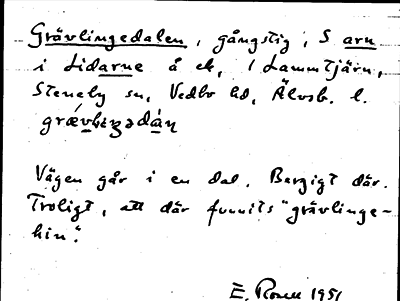 Grävlingedalen, gångstig, S arn
i Lidarne å ek, i Lammtjärn,
Steneby sn, Vedbo hd, Älvsb. l.
Vägen går i en dal. Bergigt där.
Troligt, att där funnits "grävlinge-
hin".
E. Rosell 1951